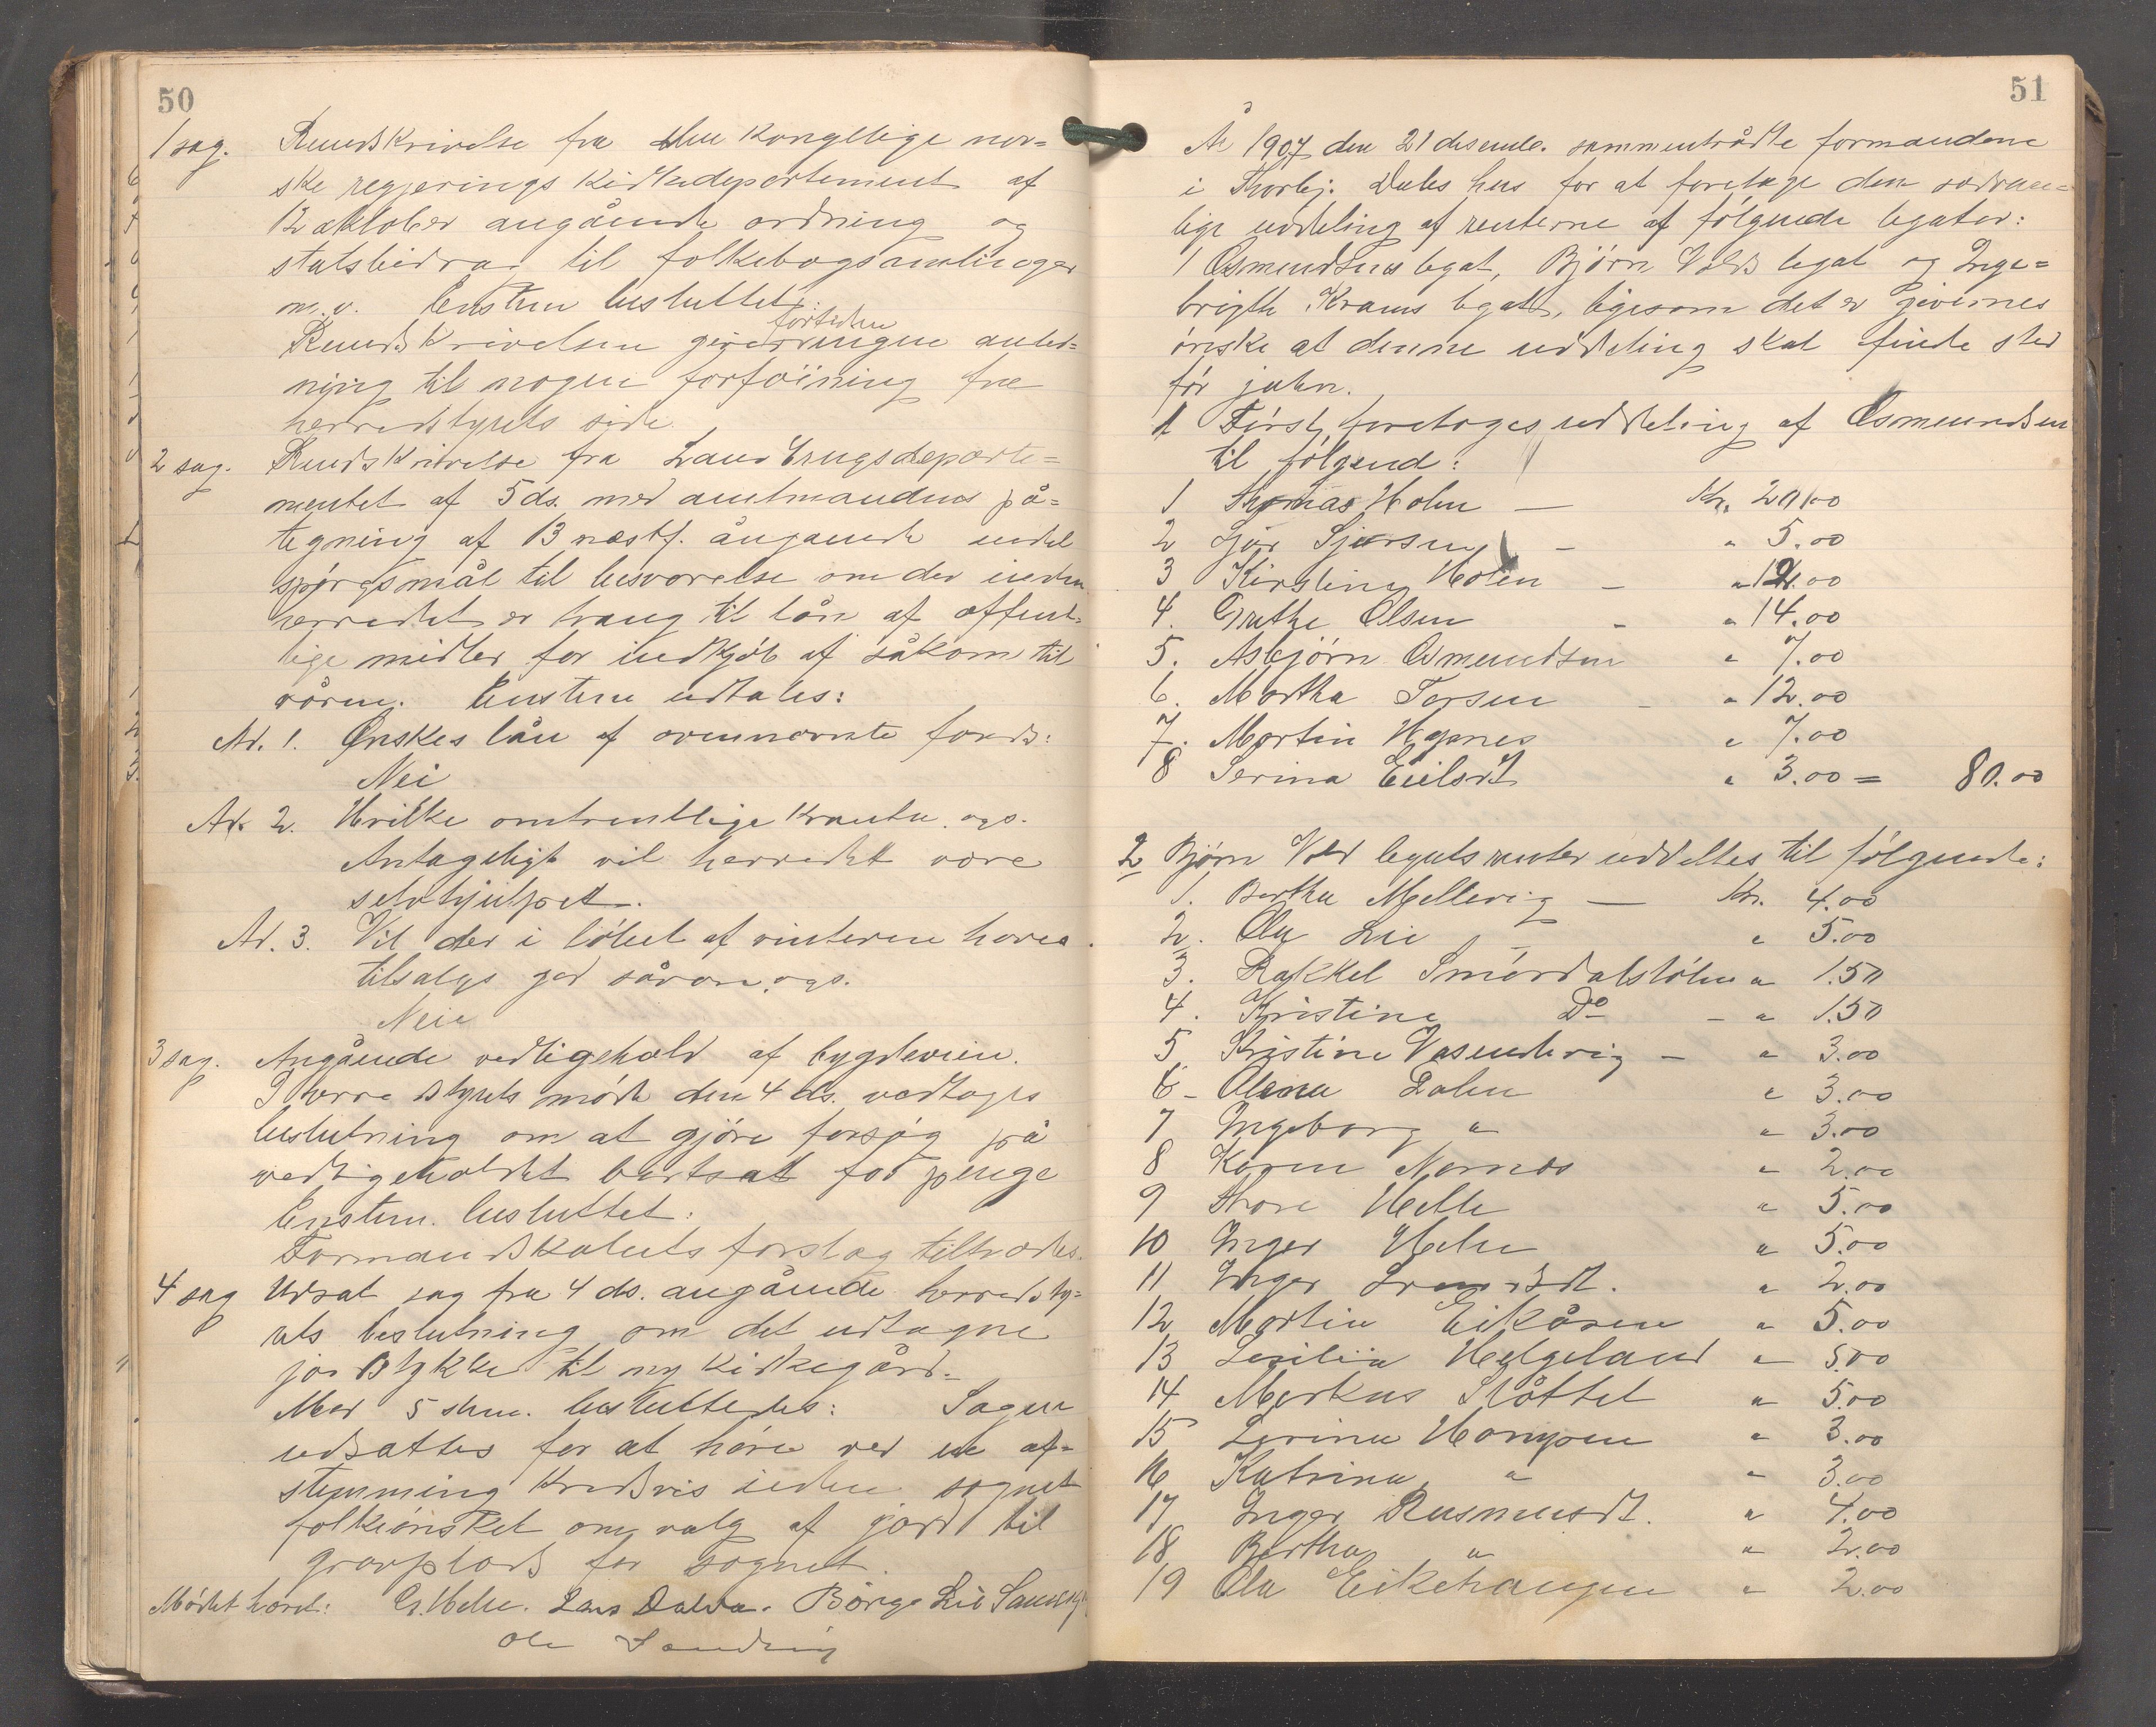 50
1 sag. Rundskrivelse fra den kongelige nor=
ske regjerings kirkedepartement af
12 oktober angående ordning og
statsbidrag til folkebogsamlinger
m.v. Enstem besluttet:
fortiden
Rundskrivelsen giver ingen anled=
ning til nogen forföining fra
herredstyrets side.
2 sag. Rundskrivelse fra Landbrugsdeparte=
mentet af 5 ds. med amtmandens på=
tegning af 13 næstf. ångaaende endel
spörgsmål til besvarelse om der inden
herredet er trang til lån af offent=
lige midler for indkjöb af såkorn til
våren. Enstem udtales:
Ad. 1. Ønskes lån af ovennævnte fonds:
Nei
Ad. 2. Hvilke omtrentlige kvanta. ogs.
Antageligt vil herredet være
selvhjulpet.
Ad. 3. Vil der i löbet af vinteren haves
tilsalgs god såvare. ogs.
Neie
3 sag. Angående vedligehold af bygdeveien.
I herredstyrets möde den 4 ds. vedtoges
beslutning om at gjöre forsög på
vedligeholdet bortsat for penge
Enstem. besluttet:
Formandskabets forslag tiltrædes.
4 sag Udsat sag fra 4 ds. angående herredsty=
rets beslutning om det udtagne
jordstykke til ny kirkegård.
Med 5 stem. besluttedes: Sagen
udsattes for at höre ved en af=
stemming kredsvis inden sognet
folkeönsket om valg af jord til
gravplads for sognet.
Mödet hævet: G. Helle. Lars Dalva. Börge Lie Sandvig
Ole Sandvig
51
År 1907 den 21 desemb. sammentrådte formændene
i Thorbj. Dales hus for at foretage den sædvan=
lige uddeling af renterne af fölgende legater:
1 Osmundsens legat, Björn Volds legat og Inge=
brigth Krams legat, ligesom det er givernes
önske at denne uddeling skal finde sted
för julen.
1 Först foretoges uddeling af Osmundsen
til fölgend:
1 Thomas Holm — Kr. 20.00
2 Gjör Sjursen - " 5.00
3 Kirstine Holen - " 12.00
4. Grethe Olsen - " 14.00
5. Asbjörn Osmundsen " 7.00
6. Martha Torsen - " 12.00
7. Martin Hopnes " 7.00
8 Serina Eielsdt " 3.00 = 80.00
2 Björn Vold legats renter uddeltes til fölgende:
1. Berthe Mellevig — Kr. 4.00
2. Ola Lie - " 5.00
3. Rakkel Smördalstölen " 1.50
4. Kristine Do - " 1.50
5 Kristine Vasendvig - " 3.00
6 - Olena Dalen " 3.00
7 Ingeborg " " 3.00
8 Karen Nornæs " 2.00
9 Thore Helle " 5.00
10 Inger Helle " 5.00
11 Inger " 2.00
12 Martin Eikåsen " 5.00
13 Helgeland " 5.00
14 Markus Slåttet " 5.00
15 Serina " 3.00
16 Katrina " " 3.00
17 Inger Rasmusdt. " 4.00
18 Bertha " " 2.00
19 Ola Eikehaugen " 2.00